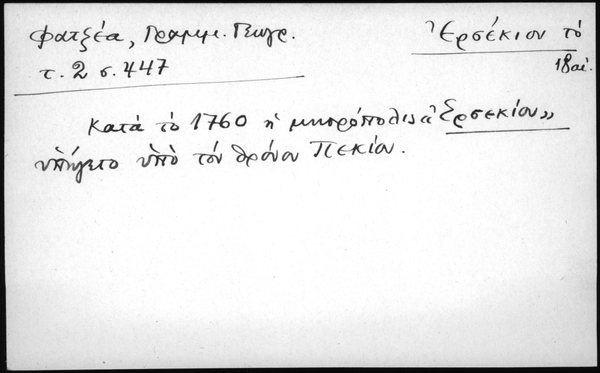 Φατζέα, Γραμμ. Γεωγρ.
τ. 2 σ. 447
Ἐρσέκιον τὸ
18 αἰ.
Κατὰ τὸ 1760 ἡ μητρόπολις «Ἐρσεκίου»
ὑπήγετο ὑπὸ τὸν θρόνον Πεκίου.